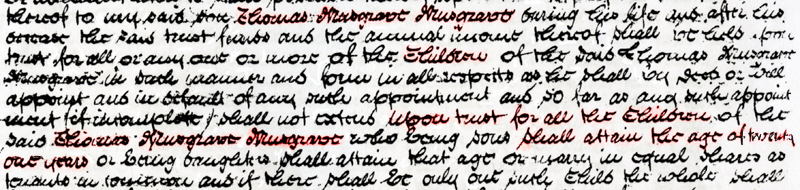 thereof to my said son Thomas Musgrave Musgrave during his life and after his
decease the said trust funds and the annual income thereof shall be held upon
trust for all or any one or more of the Children of the said Thomas Musgrave
Musgrave in such manner and form in all respects as he shall by Deed or Will
appoint and in default of any such appointment and so far as any such appoint
ment (if incomplete) shall not extend Upon trust for all the Children of the
said Thomas Musgrave Musgrave who being sons shall attain the age of twenty
one years or being daughters shall attain that age or marry in equal shares as
tenants in common and if there shall be only one such Child the whole shall